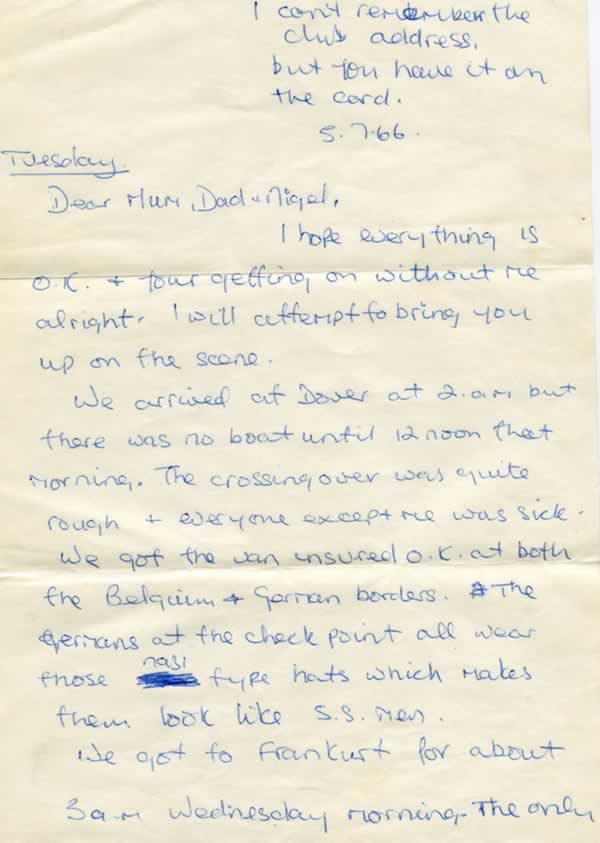 I can't remember the
club address,
but you have it on
the card.
5.7.66.
Tuesday.
Dear Mum, Dad + Nigel,
I hope everything is
O.K. + your getting on without me
alright. I will attempt to bring you
up on the scene.
We arrived at Dover at 2.am but
there was no boat until 12 noon that
morning. The crossing over was quite
rough + everyone except me was sick.
We got the van insured O.K. at both
the Belgium + German borders. The
Germans at the check point all wear
those nasi type hats which makes
them look like S.S. Men.
We got to Frankurt for about
3a.m Wednesday morning. The only